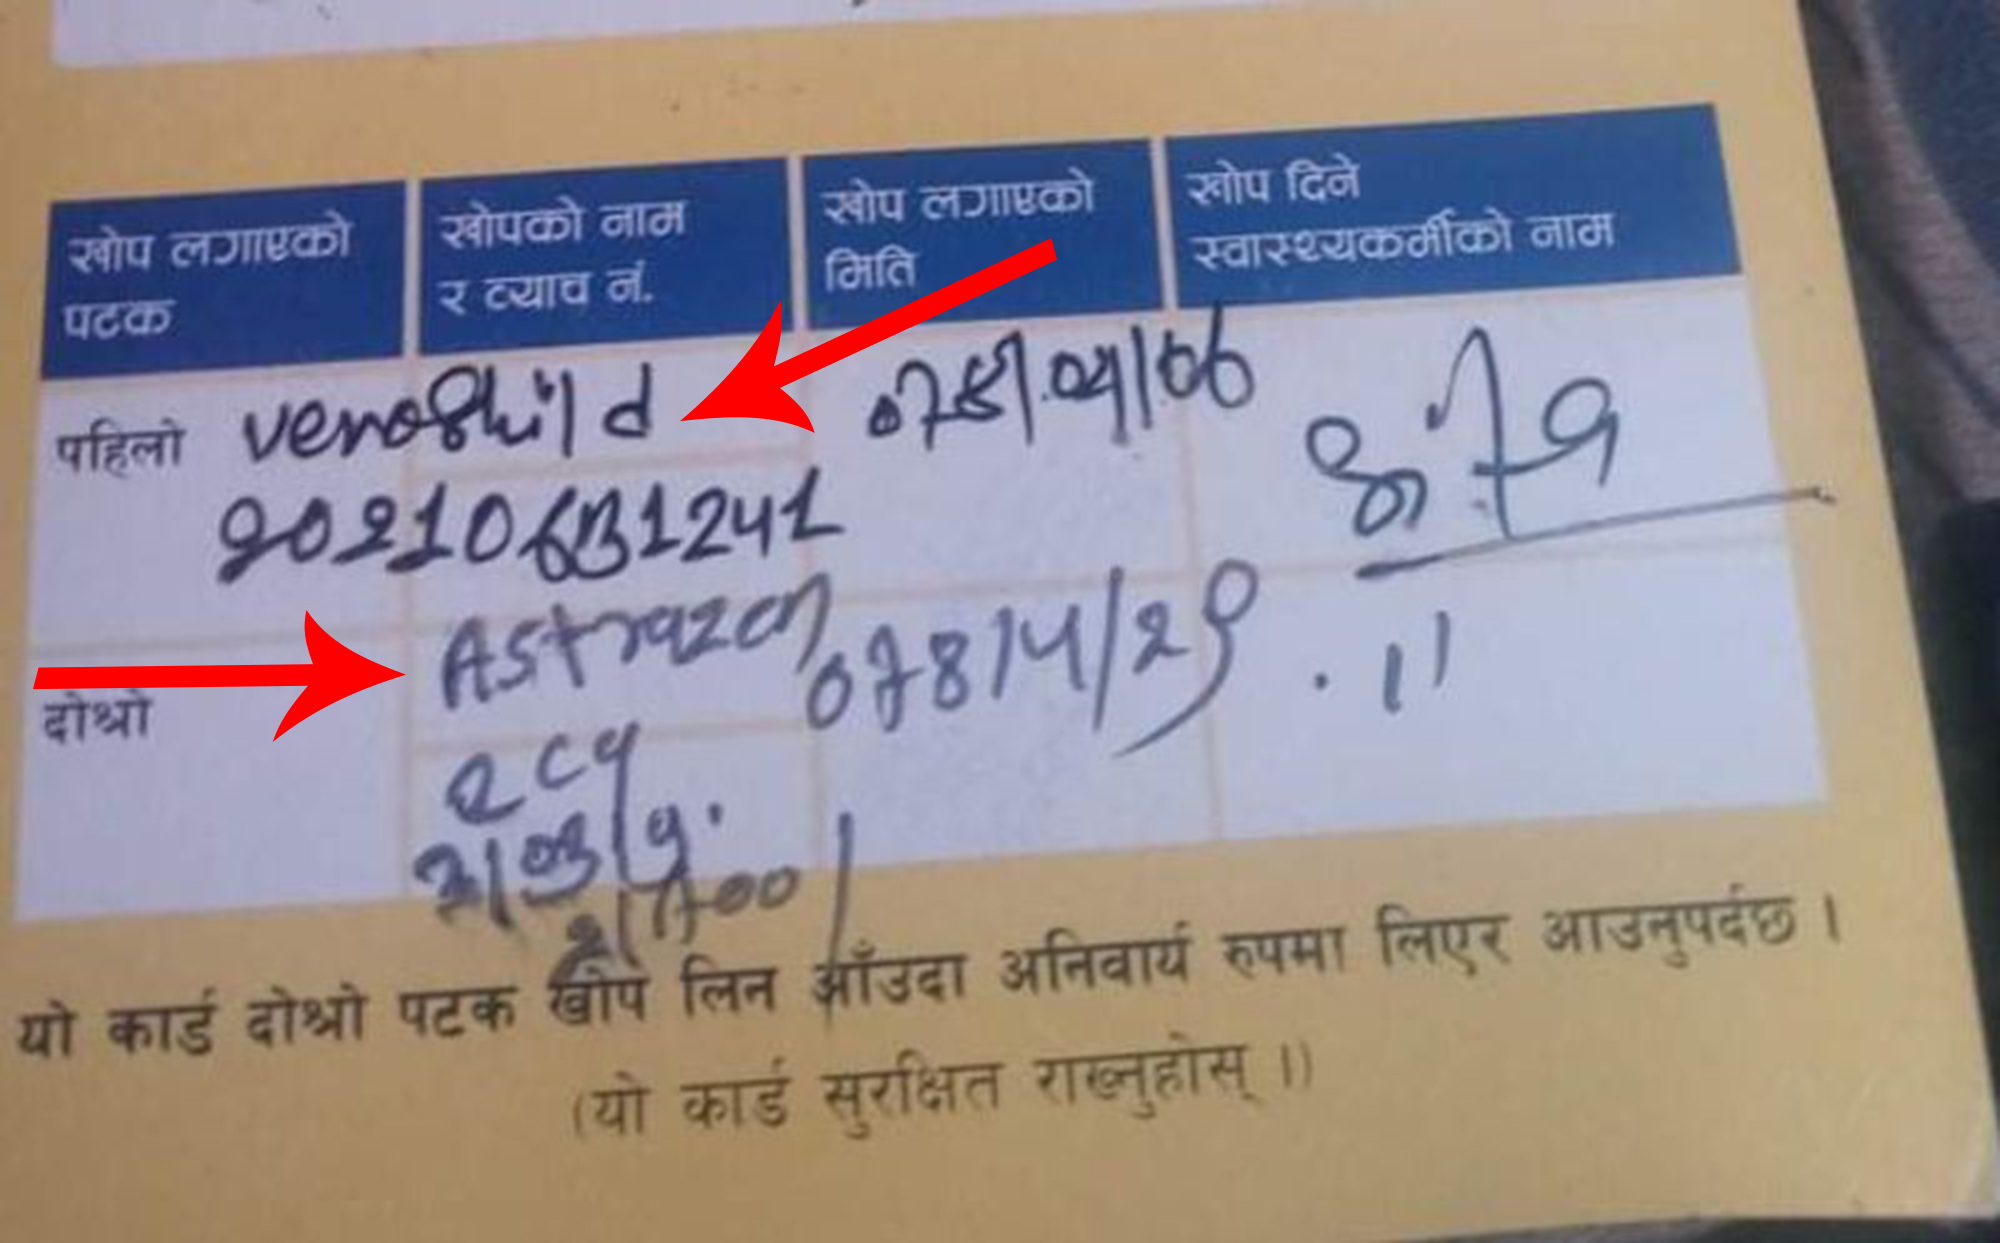 खोप लगाएको पटक
खोपको नाम र ब्याच नं.
खोप लगाएको मिति
खोप दिने स्वास्थ्यकर्मीको नाम
पहिलो
veroshild
078/.04/06
दोश्रो
Astrazen
eca
078/4/29
. 11
यो कार्ड दोश्रो पटक खोप लिन आँउदा अनिवार्य रुपमा लिएर आउनुपर्दछ ।
(यो कार्ड सुरक्षित राख्नुहोस् ।)